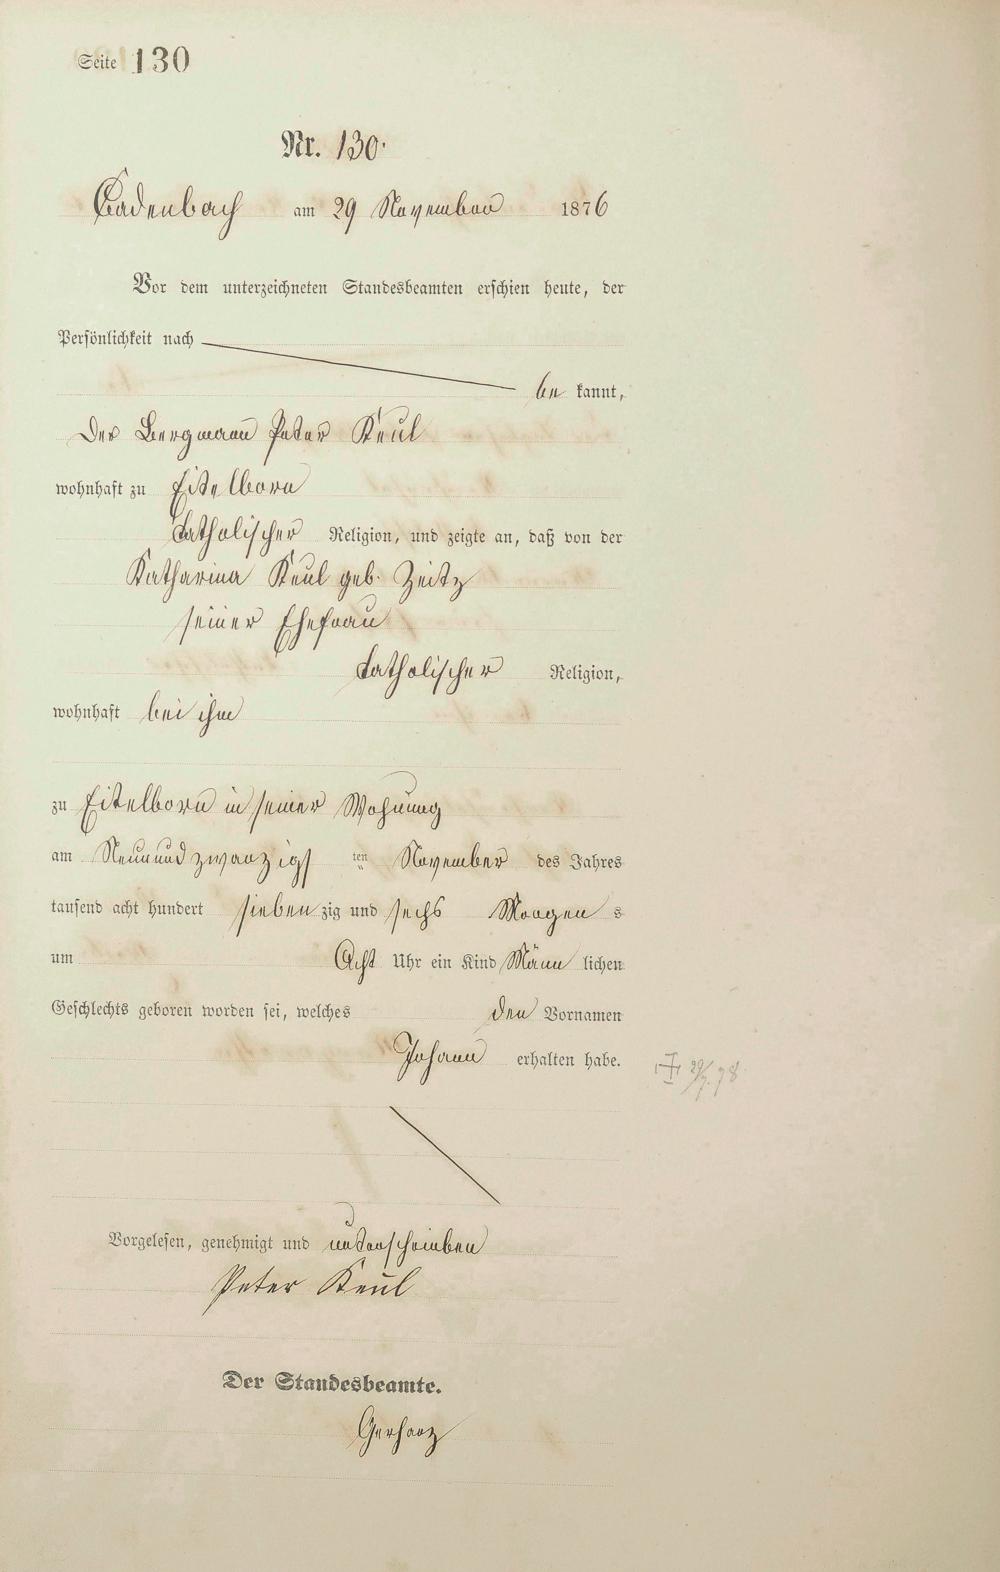 Seite 130
Nr. 130.
Cadenbach am 29 November 1876
Vor dem unterzeichneten Standesbeamten erschien heute, der
Persönlichkeit nach
be kannt,
der Bergmann Peter Keul
wohnhaft zu Eitelborn
katholischer Religion, und zeigte an, daß von der
Katharina Keul geb. Zeitz
seiner Ehefrau
katholischer Religion,
wohnhaft bei ihm
zu Eitelborn in seiner Wohnung
am Neunundzwanzigs ten November des Jahres
tausend acht hundert sieben zig und sechs Morgen s
um Acht Uhr ein Kind Männ lichen
Geschlechts geboren worden sei, welches den Vornamen
Johann erhalten habe.
29/7. 78
Vorgelesen, genehmigt und unterschrieben
Peter Keul
Der Standesbeamte.
Gerharz